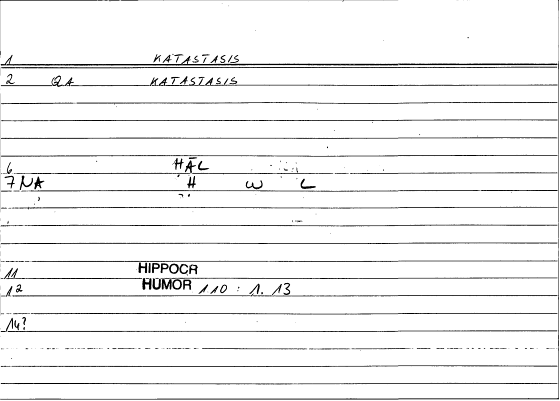 1 KATASTASIS
2 QA KATASTASIS
6 HĀL
7 NA H W L
11 HIPPOCR
12 HUMOR 110 : 1. 13
14?